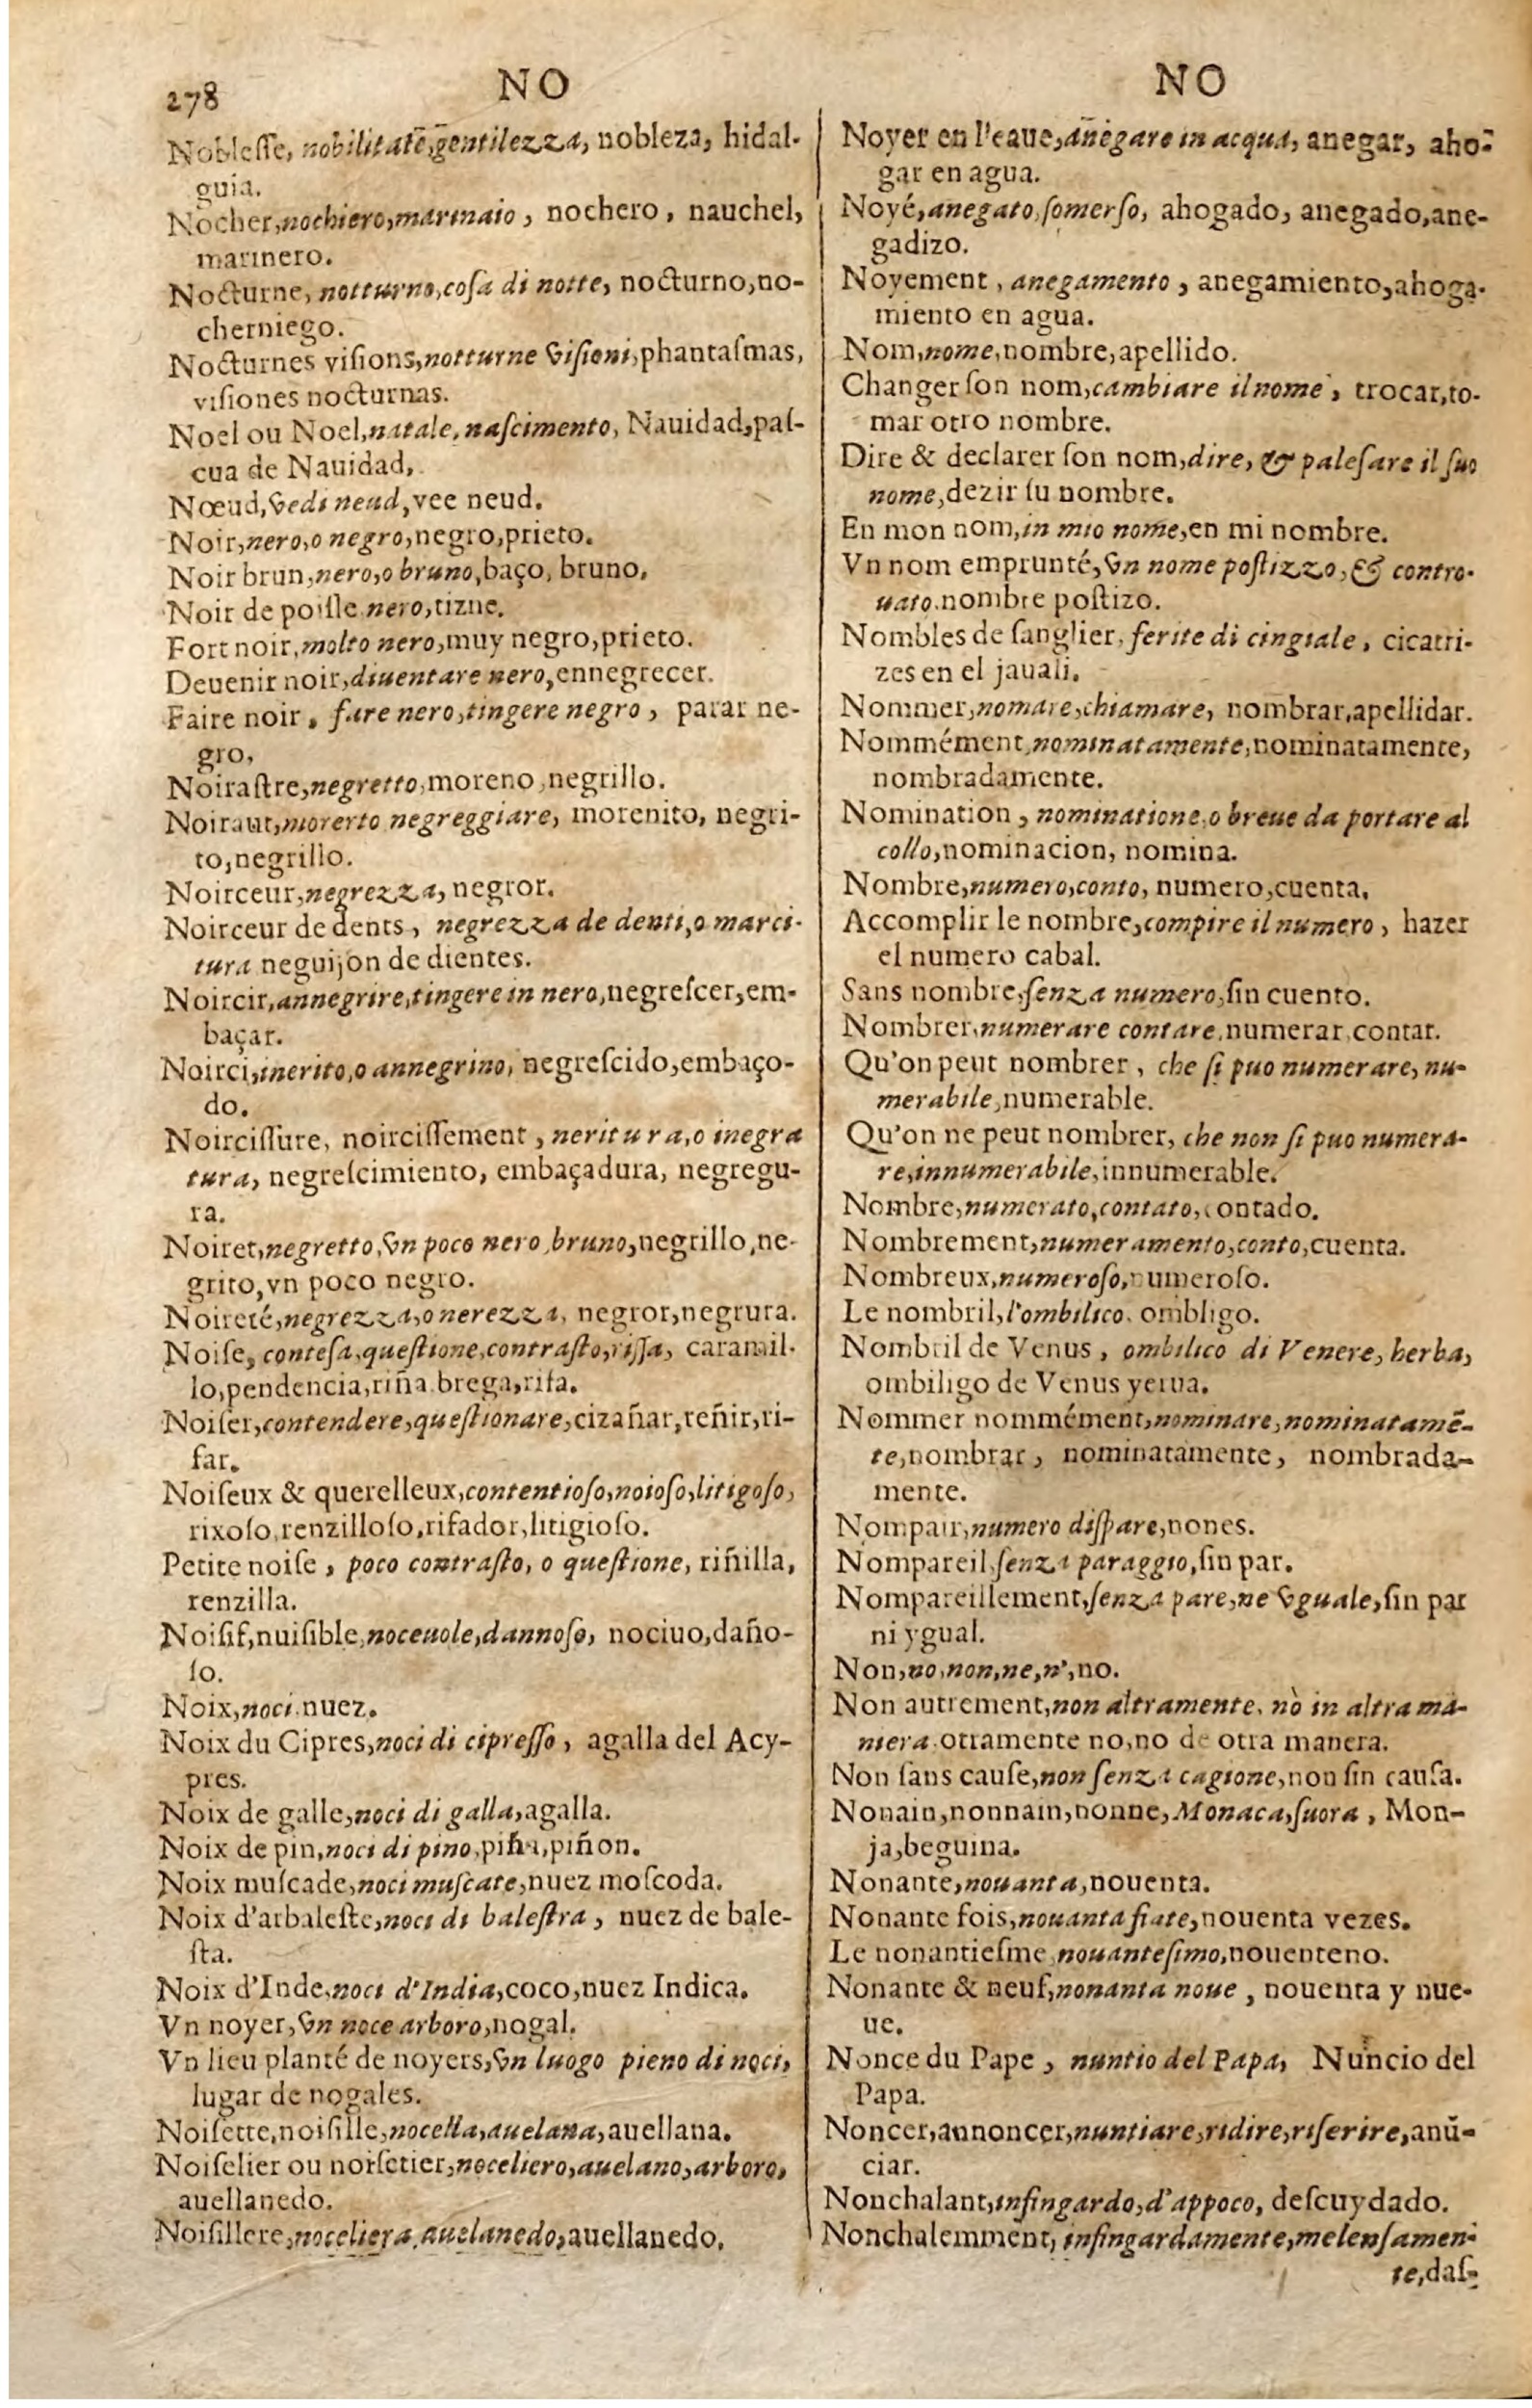 278
NO
Noblesse, nobilitatē, gentilezza, nobleza, hidal-
guia.
Nocher, nochiero, marinaio, nochero, nauchel,
marinero.
Nocturne, notturno, cosa di notte, nocturno, no-
cherniego.
Nocturnes visions, notturne visioni, phantasmas,
visiones nocturnas.
Noel ou Noel, natale, nascimento, Nauidad, pas-
cua de Nauidad,
Nœud, vedi neud, vee neud.
Noir, nero, o negro, negro, prieto.
Noir brun, nero, o bruno, baço, bruno,
Noir de poisle nero, tizne.
Fort noir, molto nero, muy negro, prieto.
Deuenir noir, diuentare nero, ennegrecer.
Faire noir, fare nero, tingere negro, parar ne-
gro,
Noirastre, negretto, moreno, negrillo.
Noiraut, morerto negreggiare, morenito, negri-
to, negrillo.
Noirceur, negrezza, negror.
Noirceur de dents, negrezza de denti, o marci-
tura neguijon de dientes.
Noircir, annegrire, tingere in nero, negrescer, em-
baçar.
Noirci, inerito, o annegrino, negrescido, embaço-
do.
Noircissure, noircissement, neritura, o inegra
tura, negrescimiento, embaçadura, negregu-
ra.
Noiret, negretto, vn poco nero, bruno, negrillo, ne-
grito, vn poco negro.
Noireté, negrezza, o nerezza, negror, negrura.
Noise, contesa, questione, contrasto, rissa, caramil-
lo, pendencia, riña brega, rifa.
Noiser, contendere, questionare, cizañar, reñir, ri-
far.
Noiseux & querelleux, contentioso, noioso, litigoso,
rixoso, renzilloso, rifador, litigioso.
Petite noise, poco contrasto, o questione, riñilla,
renzilla.
Noisif, nuisible, noceuole, dannoso, nociuo, daño-
so.
Noix, noci nuez.
Noix du Cipres, noci di cipresso, agalla del Acy-
pres.
Noix de galle, noci di galla, agalla.
Noix de pin, noci di pino, piña, piñon.
Noix muscade, noci muscate, nuez moscoda.
Noix d'arbaleste, noci di balestra, nuez de bale-
sta.
Noix d'Inde, noci d'India, coco, nuez Indica.
Vn noyer, vn noce arboro, nogal.
Vn lieu planté de noyers, vn luogo pieno di noci,
lugar de nogales.
Noisette, noisille, nocella, auelana, auellana.
Noiselier ou noisetier, noceliero, auelano, arboro,
auellanedo.
Noisillere, noceliera auelanedo, auellanedo.
NO
Noyer en l'eaue, añegare in acqua, anegar, aho-
gar en agua.
Noyé, anegato, somerso, ahogado, anegado, ane-
gadizo.
Noyement, anegamento, anegamiento, ahoga-
miento en agua.
Nom, nome, nombre, apellido.
Changer son nom, cambiare il nome, trocar, to-
mar otro nombre.
Dire & declarer son nom, dire, & palesare il suo
nome, dezir su nombre.
En mon nom, in mio nome, en mi nombre.
Vn nom emprunté, vn nome postizzo, & contro-
uato nombre postizo.
Nombles de sanglier, ferite di cingiale, cicatri-
zes en el jauali.
Nommer, nomare, chiamare, nombrar, apellidar.
Nommément, nominatamente, nominatamente,
nombradamente.
Nomination, nominatione, o breue da portare al
collo, nominacion, nomina.
Nombre, numero, conto, numero, cuenta.
Accomplir le nombre, compire il numero, hazer
el numero cabal.
Sans nombre, senza numero, sin cuento.
Nombrer, numerare contare, numerar, contar.
Qu'on peut nombrer, che si puo numerare, nu-
merabile, numerable.
Qu'on ne peut nombrer, che non si puo numera-
re, innumerabile, innumerable.
Nombre, numerato, contato, contado.
Nombrement, numeramento, conto, cuenta.
Nombreux, numeroso, numeroso.
Le nombril, l'ombilico, ombligo.
Nombril de Venus, ombilico di Venere, herba,
ombiligo de Venus yerua.
Nommer nommément, nominare, nominatamē-
te, nombrar, nominatamente, nombrada-
mente.
Nompair, numero dispare, nones.
Nompareil, senza paraggio, sin par.
Nompareillement, senza pare, ne vguale, sin par
ni ygual.
Non, no, non, ne, n', no.
Non autrement, non altramente, nò in altra ma-
niera otramente no, no de otra manera.
Non sans cause, non senza cagione, non sin causa.
Nonain, nonnain, nonne, Monaca, suora, Mon-
ja, beguina.
Nonante, nouanta, nouenta.
Nonante fois, nouanta fiate, nouenta vezes.
Le nonantiesme nouantesimo, nouenteno.
Nonante & neuf, nonanta noue, nouenta y nue-
ue.
Nonce du Pape, nuntio del Papa, Nuncio del
Papa.
Noncer, annoncer, nuntiare, ridire, riserire, anū-
ciar.
Nonchalant, infingardo, d'appoco, descuydado.
Nonchalemment, infingardamente, melensamen-
te, das-